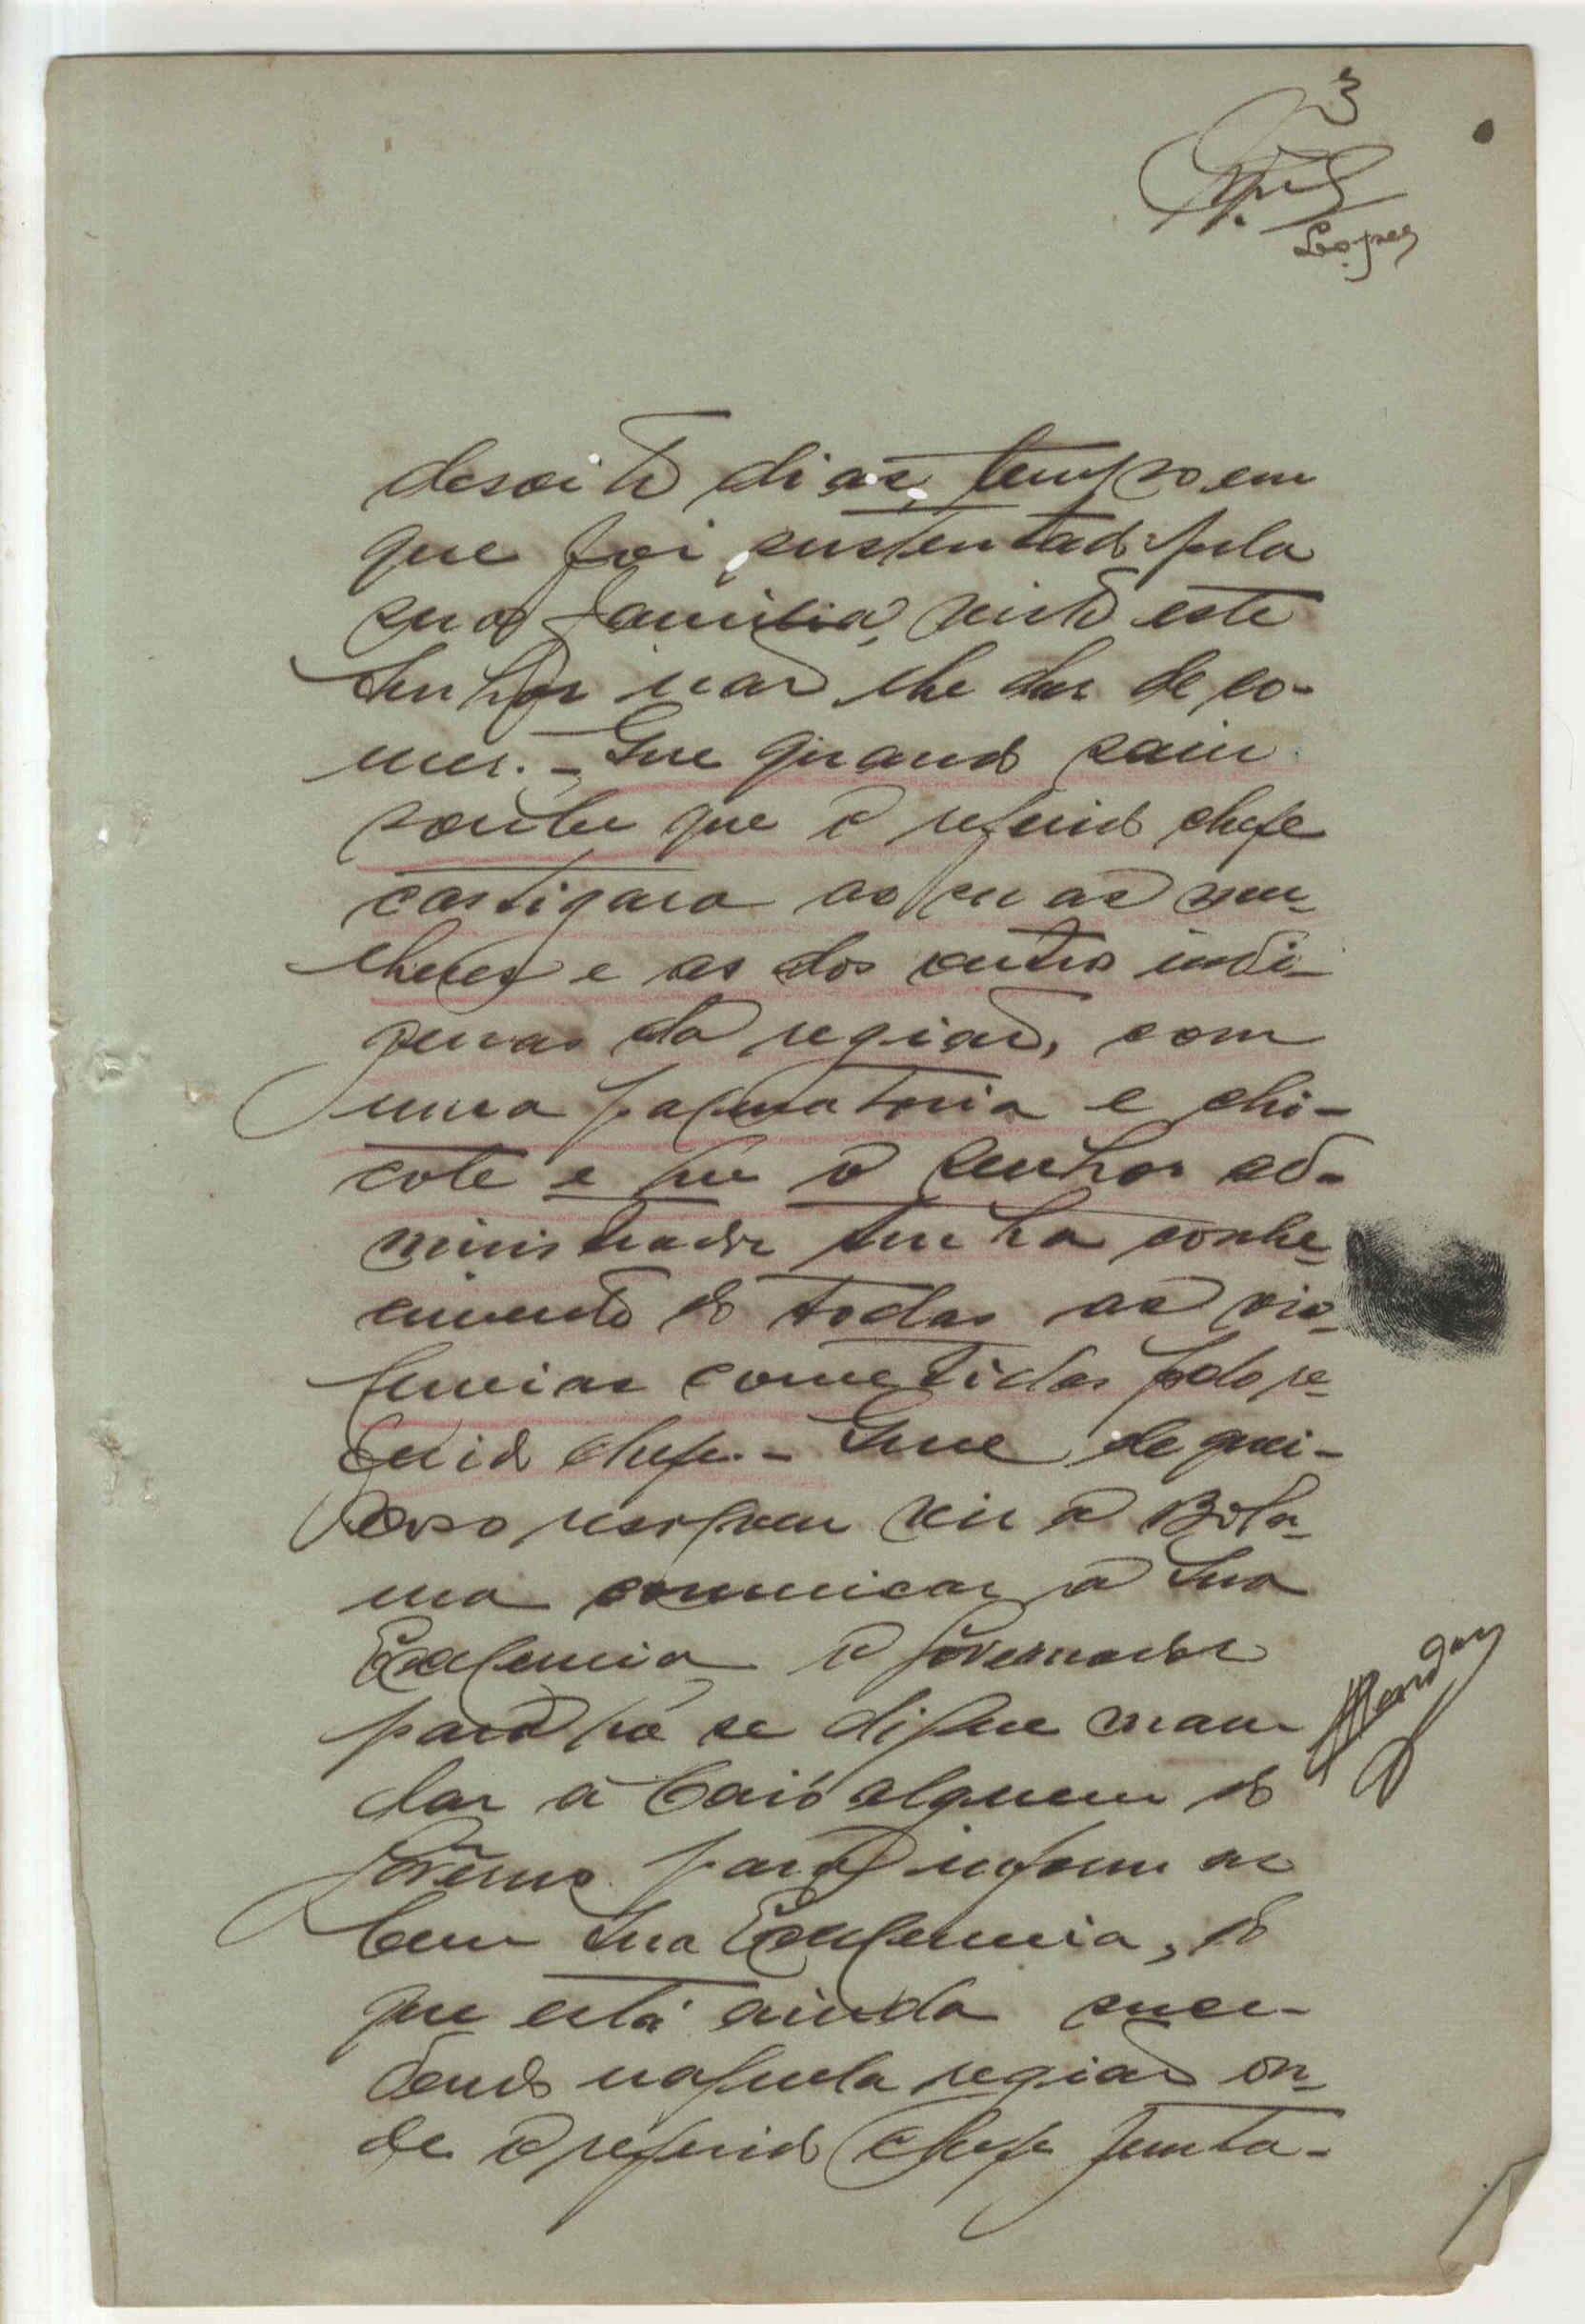 3
Lopes
desoito dias, tempo em
que foi sustentado pela
sua familia, visto este
senhor não lhe dar de co-
mer. - Que quando saiu
soube que o referido chefe
castigara as suas mu-
lheres e as dos outros indi-
genas da região, com
uma palmatoria e chi-
cote e que o senhor ad-
ministrador tinha conhe-
cimento de todas as vio-
lencias cometidas pelo re-
ferido chefe. - Que de
vir a Bola-
ma comunicar a Sua
Excelencia o Governador
para que se digne man-
dar a Caió alguem do
Govêrno para informar
bem Sua Excelencia, do
que está ainda suce-
dendo naquela região on-
de o referido chefe junta-